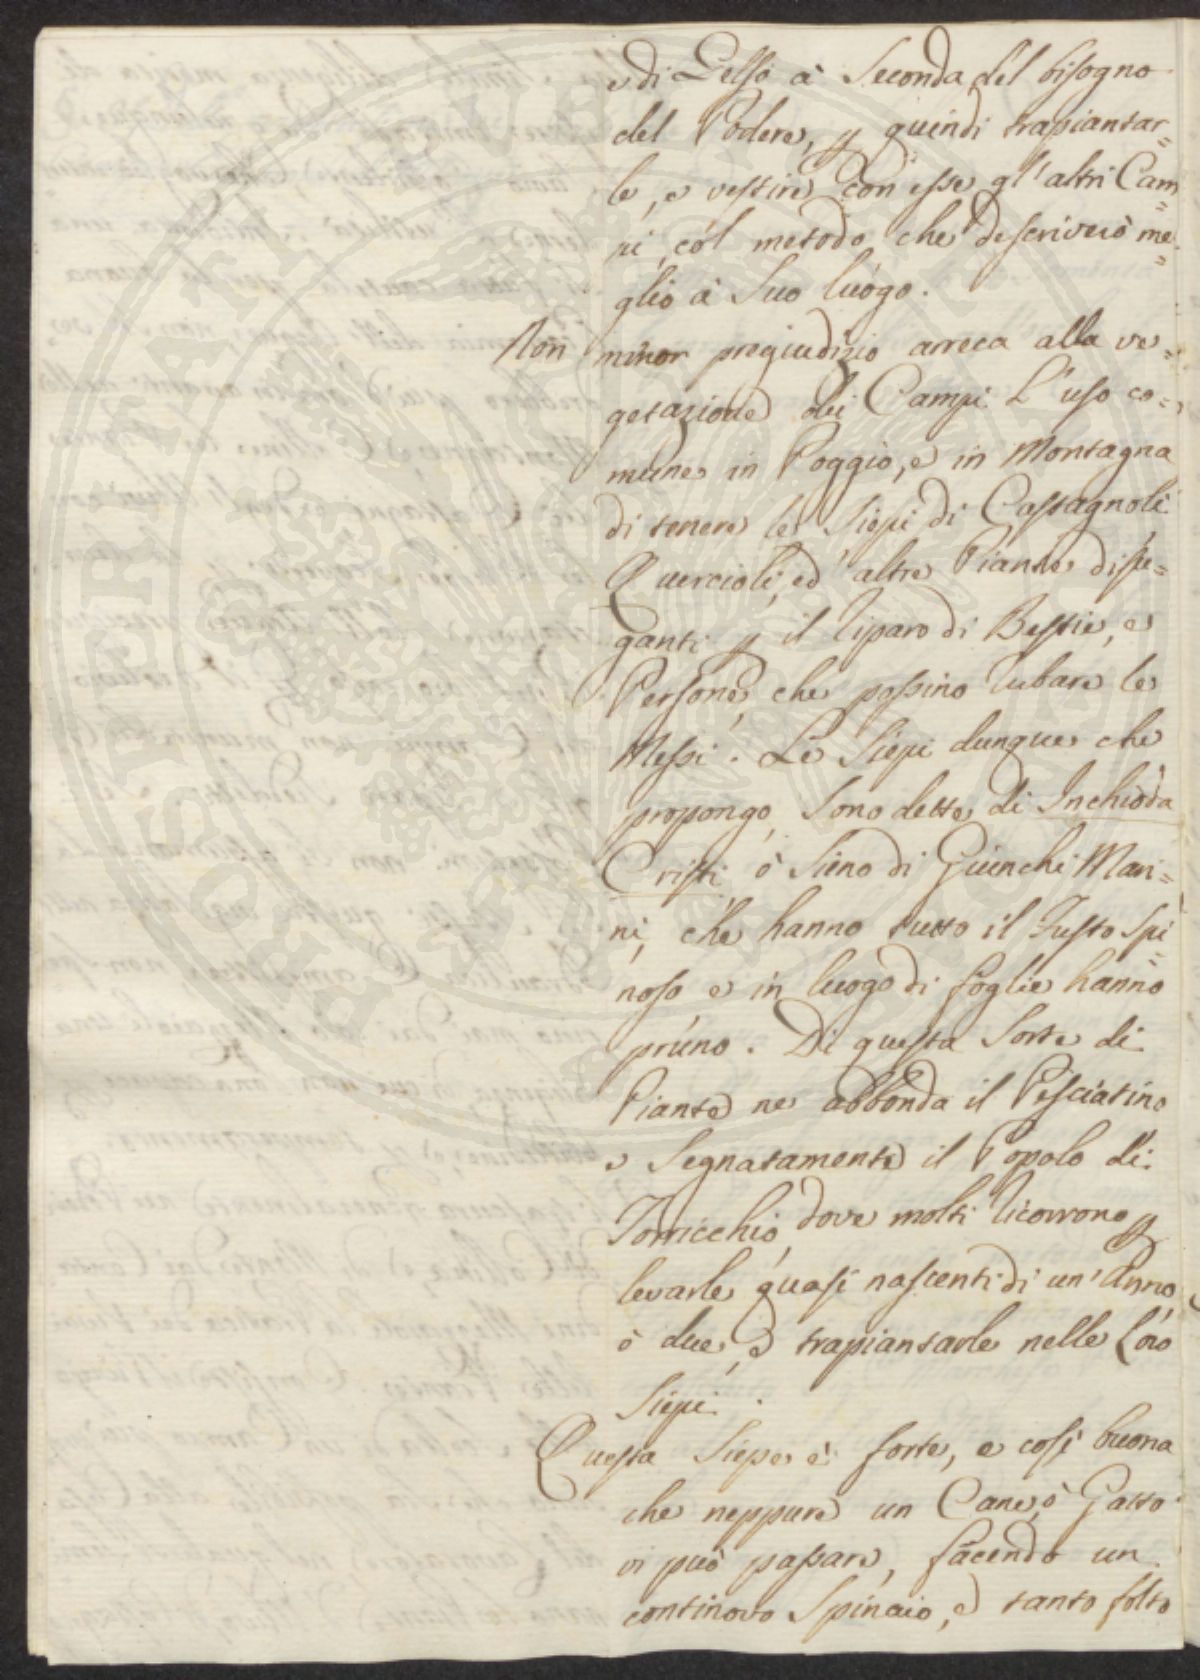 e di Gelso à Seconda del bisogno
del Podere, p quindi trapiantar=
le, e vestire con esse gl'altri Cam=
pi, col metodo che descriverò me=
glio à Suo luogo.
Non minor pregiudizio arreca alla ve=
getazione dei Campi L'uso co=
mune in Poggio, e in Montagna
di tenere le Siepi di Castagnoli
Quercioli, ed altre Piante dispe=
ganti p il riparo di Bestie, e
Persone, che possino rubare le
Messi. Le Siepi dunque che
propongo, Sono dette di Inchioda
Cristi ò Sieno di Giunchi Mari=
ni, che hanno tutto il Fusto Spi=
noso e in luogo di foglie hanno
pruno. Di questa Sorte di
Piante ne abbonda il Pesciatino
e Segnatamente il Popolo di
Torricchio, dove molti ricorrono p
levarle quasi nascenti di un'Anno
ò due, e trapiantarle nelle Loro
Siepi.
Questa Siepe è forte, e così buona
che neppure un Cane, ò Gatto
vi può passare, facendo un
continovo Spinaio, e tanto folto
PROSPERITATI PUBLICAE